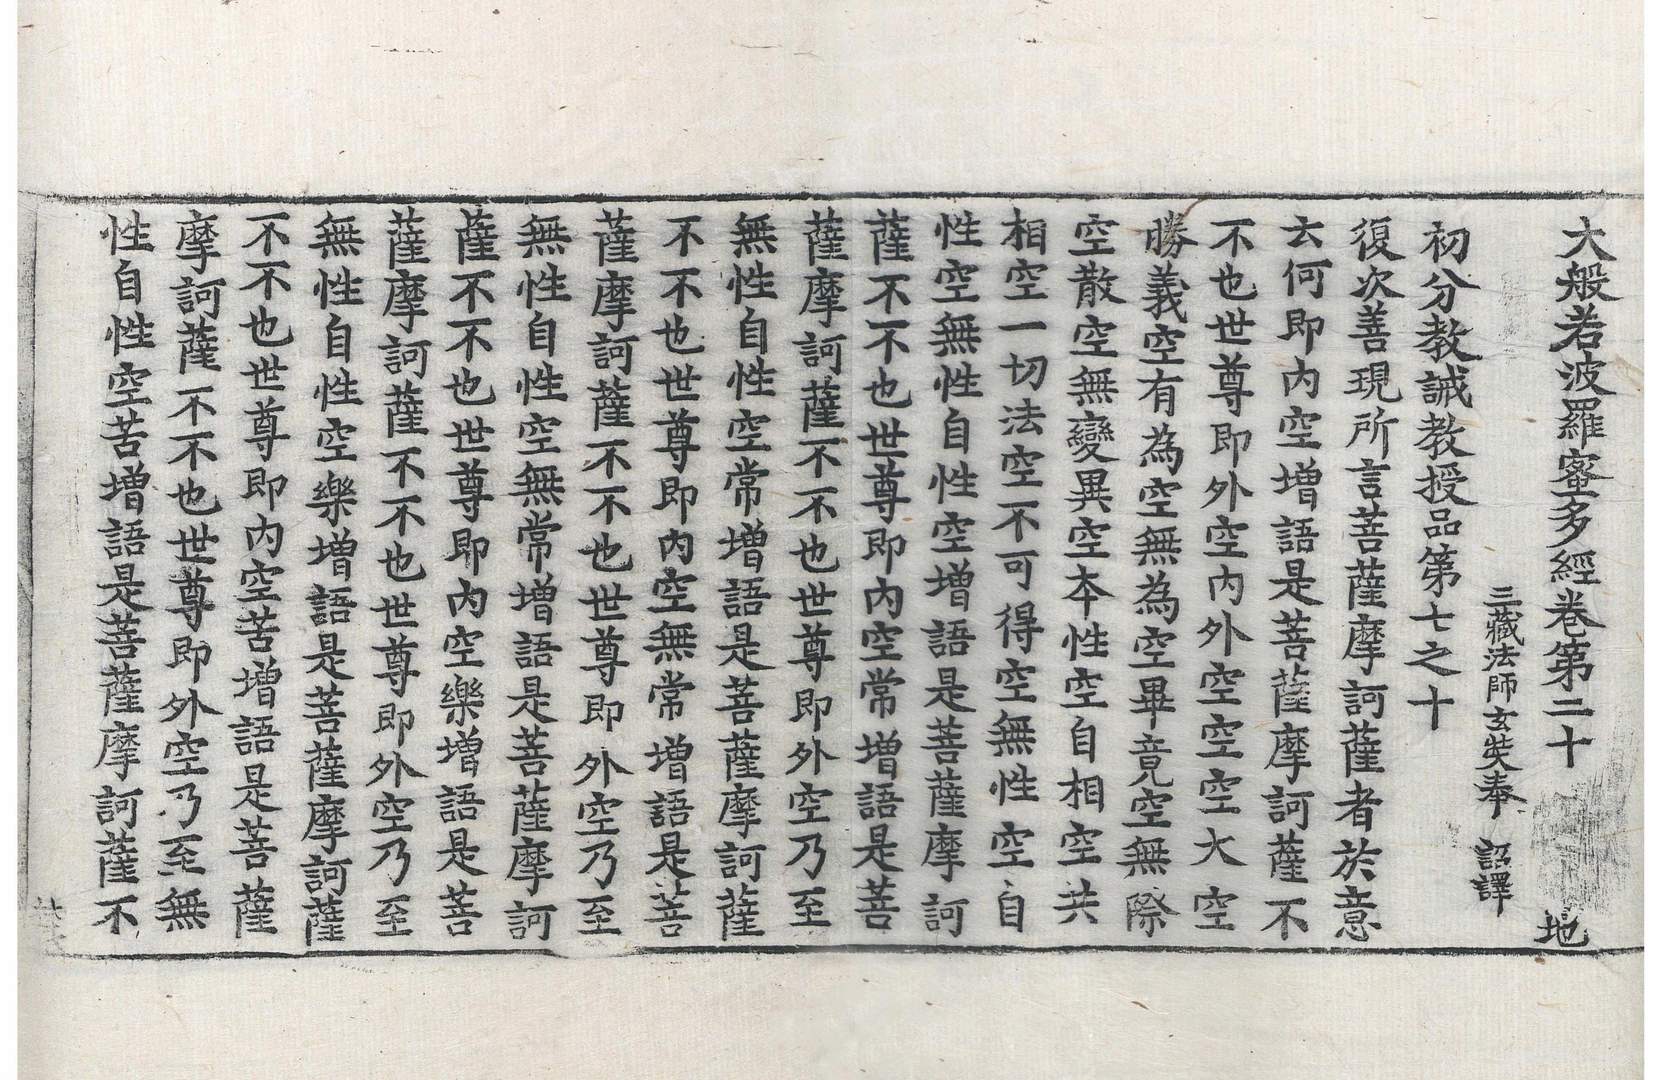 大般若波羅蜜多經卷第二十 地
三藏法師玄奘奉 詔譯
初分教誡教授品第七之十
復次善現所言菩薩摩訶薩者於意
云何即内空增語是菩薩摩訶薩不
不也世尊即外空内外空空空大空
勝義空有為空無為空畢竟空無際
空散空無變異空本性空自相空共
相空一切法空不可得空無性空自
性空無性自性空增語是菩薩摩訶
薩不不也世尊即内空常增語是菩
薩摩訶薩不不也世尊即外空乃至
無性自性空常增語是菩薩摩訶薩
不不也世尊即内空無常增語是菩
薩摩訶薩不不也世尊即外空乃至
無性自性空無常增語是菩薩摩訶
薩不不也世尊即内空樂增語是菩
薩摩訶薩不不也世尊即外空乃至
無性自性空樂增語是菩薩摩訶薩
不不也世尊即内空苦增語是菩薩
摩訶薩不不也世尊即外空乃至無
性自性空苦增語是菩薩摩訶薩不